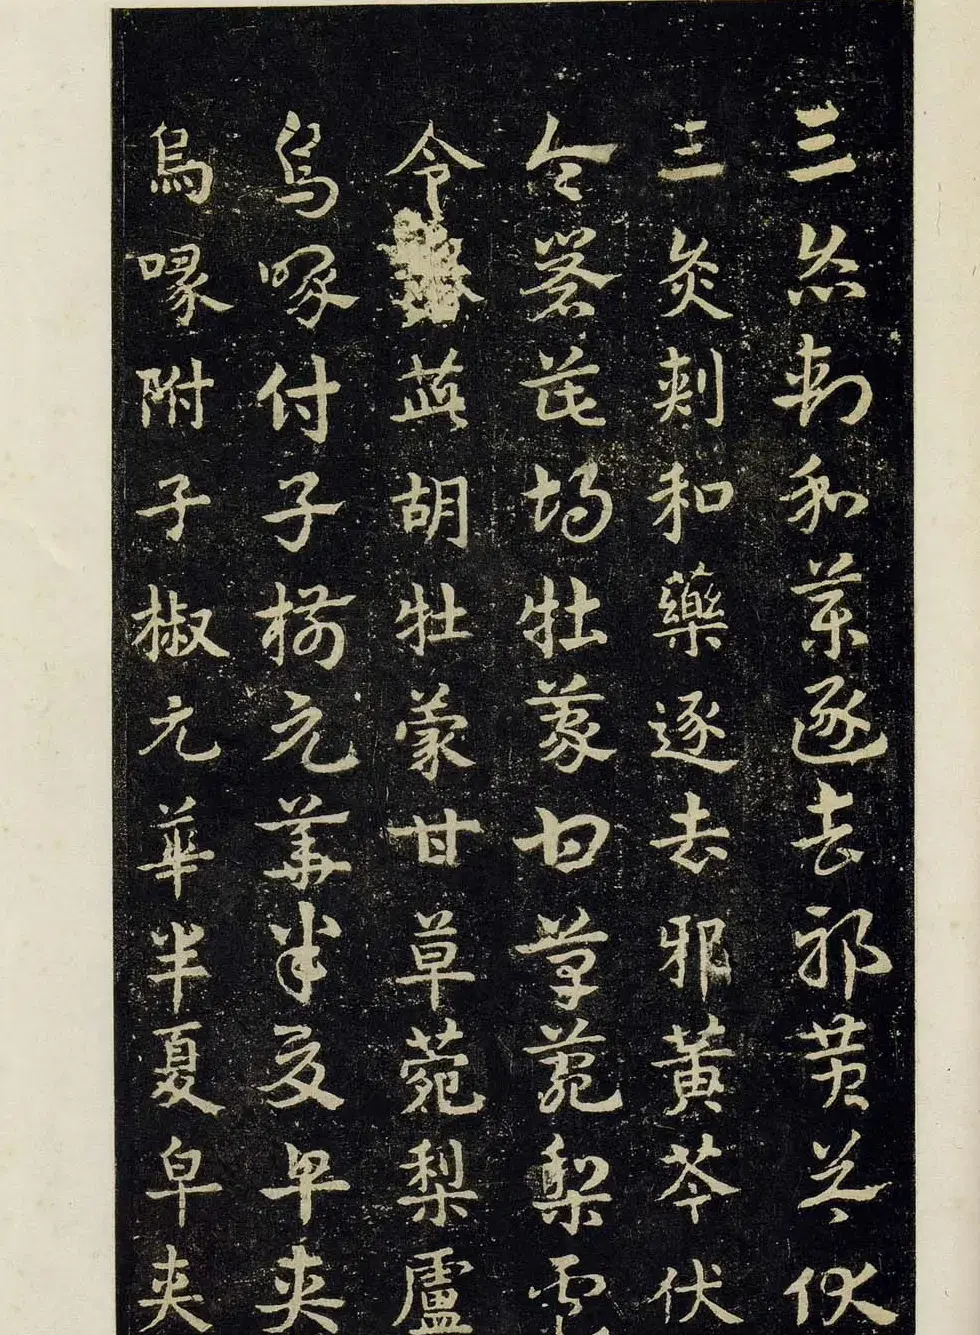 三灸刺和藥逐去邪黃芩伏
三灸刺和藥逐去邪黃芩伏
令礜茈胡牡蒙甘草菀梨
令茈胡牡蒙甘草菀梨盧
烏喙付子椒元華半夏皁夾
烏喙附子椒元華半夏皁夾